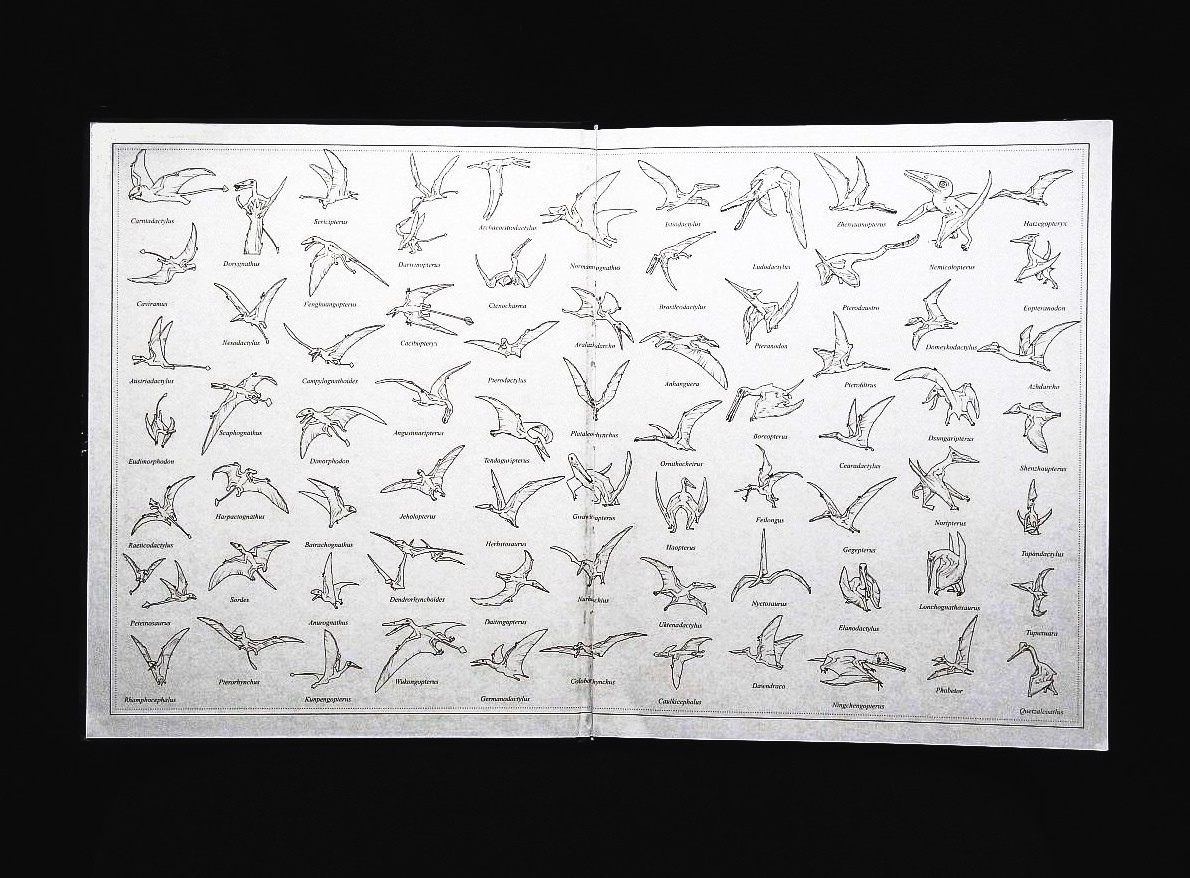 Carniadactylus
Dorygnathus
Sericipterus
Darwinopterus
Archaeoistiodactylus
Normannognathus
Istiodactylus
Ludodactylus
Zhenyuanopterus
Nemicolopterus
Hatzegopteryx
Caviramus
Nesodactylus
Fenghuangopterus
Cacibupteryx
Ctenochasma
Aralazhdarcho
Brasileodactylus
Pteranodon
Pterodaustro
Domeykodactylus
Eopteranodon
Austriadactylus
Scaphognathus
Campylognathoides
Angustinaripterus
Pterodactylus
Plataleorhynchus
Anhanguera
Boreopterus
Pterofiltrus
Dsungaripterus
Azhdarcho
Eudimorphodon
Harpactognathus
Dimorphodon
Jeholopterus
Tendaguripterus
Ornithocheirus
Feilongus
Cearadactylus
Noripterus
Shenzhoupterus
Raeticodactylus
Sordes
Batrachognathus
Dendrorhynchoides
Herbstosaurus
Haopterus
Nyctosaurus
Gegepterus
Lonchognathosaurus
Tupandactylus
Peteinosaurus
Pterorhynchus
Anurognathus
Wukongopterus
Daitingopterus
Uktenadactylus
Dawndraco
Elanodactylus
Phobetor
Tupuxuara
Rhamphocephalus
Kunpengopterus
Germanodactylus
Coloborhynchus
Caulkicephalus
Ningchengopterus
Quetzalcoatlus